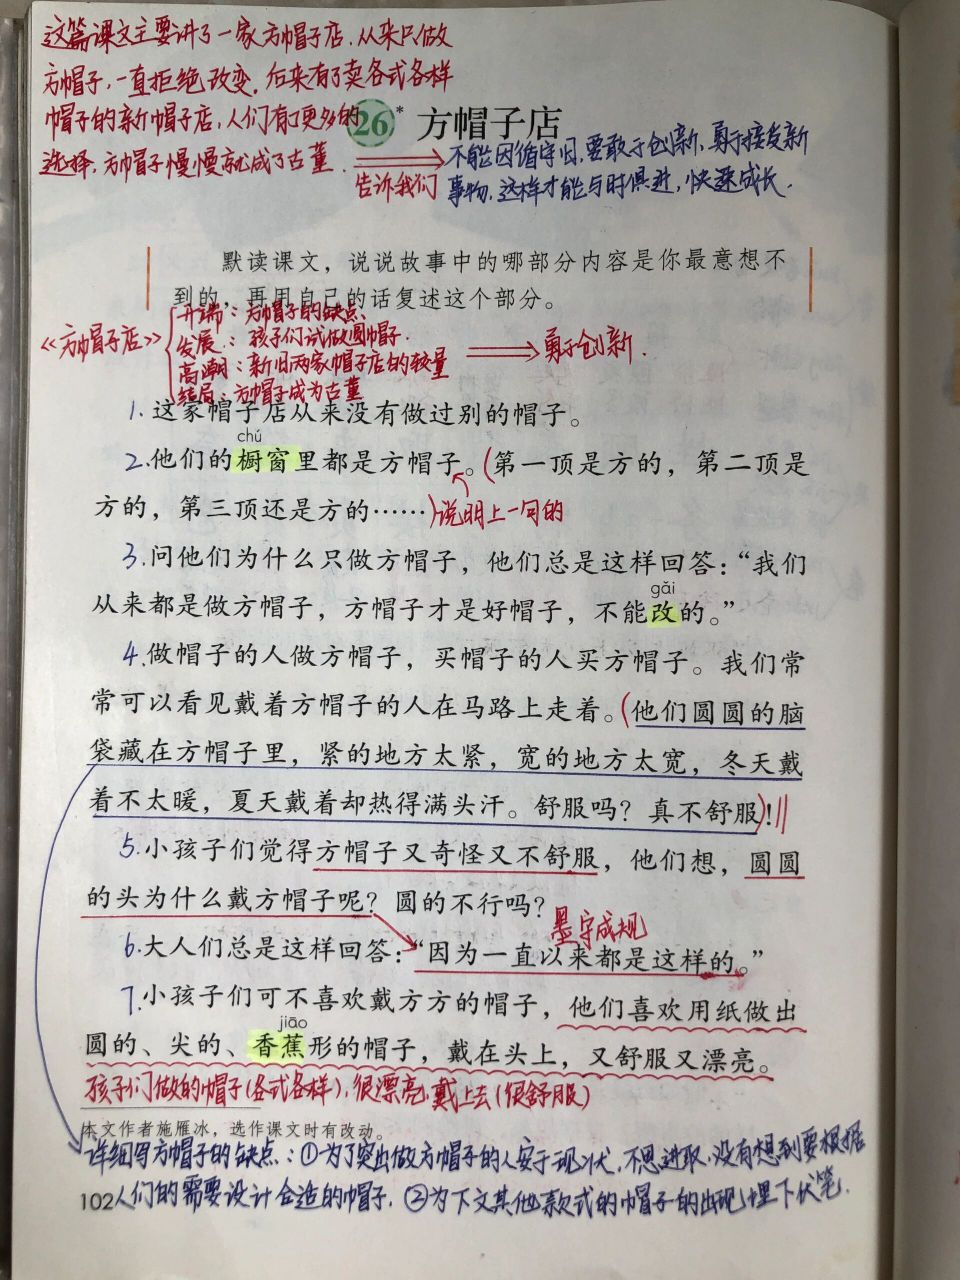 这篇课文主要讲了一家方帽子店,从来只做
方帽子,一直拒绝改变。后来有了卖各式各样
帽子的新帽子店,人们有了更多的
选择,方帽子慢慢就成了古董.
26* 方帽子店
告诉我们
不能因循守旧,要敢于创新,勇于接受新
事物,这样才能与时俱进,快速成长.
默读课文,说说故事中的哪部分内容是你最意想不
到的,再用自己的话复述这个部分。
《方帽子店》
开端:方帽子的缺点、
发展:孩子们试做圆帽子.
高潮:新旧两家帽子店的较量
结局:方帽子成为古董
勇于创新.
1.这家帽子店从来没有做过别的帽子。
chú
2.他们的橱窗里都是方帽子。(第一顶是方的,第二顶是
方的,第三顶还是方的……)说明上一句的
3.问他们为什么只做方帽子,他们总是这样回答:“我们
gǎi
从来都是做方帽子,方帽子才是好帽子,不能改的。”
4.做帽子的人做方帽子,买帽子的人买方帽子。我们常
常可以看见戴着方帽子的人在马路上走着。(他们圆圆的脑
袋藏在方帽子里,紧的地方太紧,宽的地方太宽,冬天戴
着不太暖,夏天戴着却热得满头汗。舒服吗?真不舒服)!
5.小孩子们觉得方帽子又奇怪又不舒服,他们想,圆圆
的头为什么戴方帽子呢?圆的不行吗?
墨守成规
6.大人们总是这样回答:“因为一直以来都是这样的。”
7.小孩子们可不喜欢戴方方的帽子,他们喜欢用纸做出
jiāo
圆的、尖的、香蕉形的帽子,戴在头上,又舒服又漂亮。
孩子们做的帽子(各式各样),很漂亮,戴上去(很舒服)
本文作者施雁冰,选作课文时有改动。
详细写方帽子的缺点:①为了突出做方帽子的人安于现状,不思进取,没有想到要根据
人们的需要设计合适的帽子.②为下文其他款式的帽子的出现埋下伏笔.
102